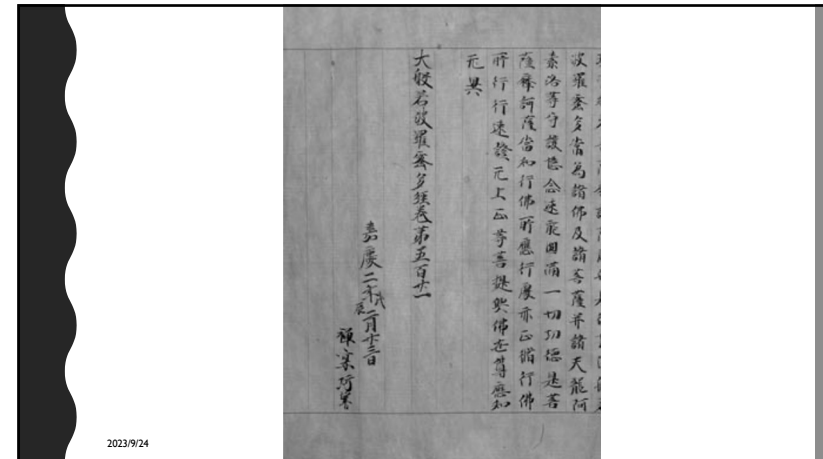 波羅蜜多當為諸佛及諸菩薩并諸天龍阿
素洛等守護憶念速能圓滿一切功德是菩
薩摩訶薩當知行佛所應行處亦正脩行佛
所行行速證无上正等菩提與佛世尊應知
无異
大般若波羅蜜多經卷第五百十一
嘉慶二年戊辰二月十三日
2023/9/24